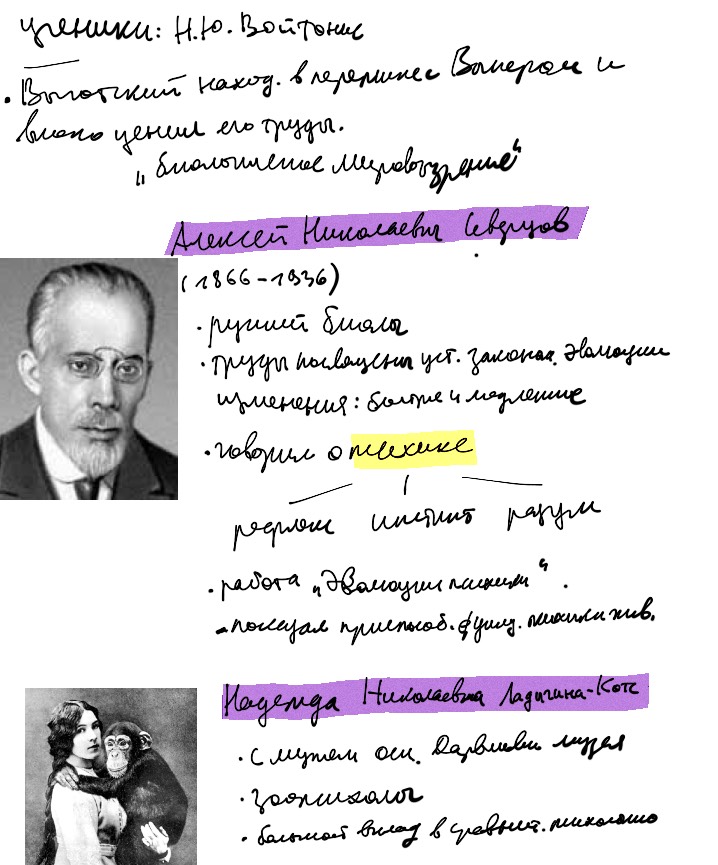 ученики: Н.Ю. Войтонис
• Выготский наход. в переписке с Вагнером и
высоко ценил его труды.
„биологическое мировоззрение“
Алексей Николаевич Северцов
(1866-1936)
• русский биолог
• труды посвящены уст. законов. эволюции
изменения: быстрые и медленные
• говорил о психике
рефлекс инстинкт разум
• работа „Эволюции психики“.
- показал приспособ. функц. психики жив.
Надежда Николаевна Ладыгина-Котс
• с мужем осн. Дарвиновский музей
• зоопсихолог
• большой вклад в сравнит. психологию